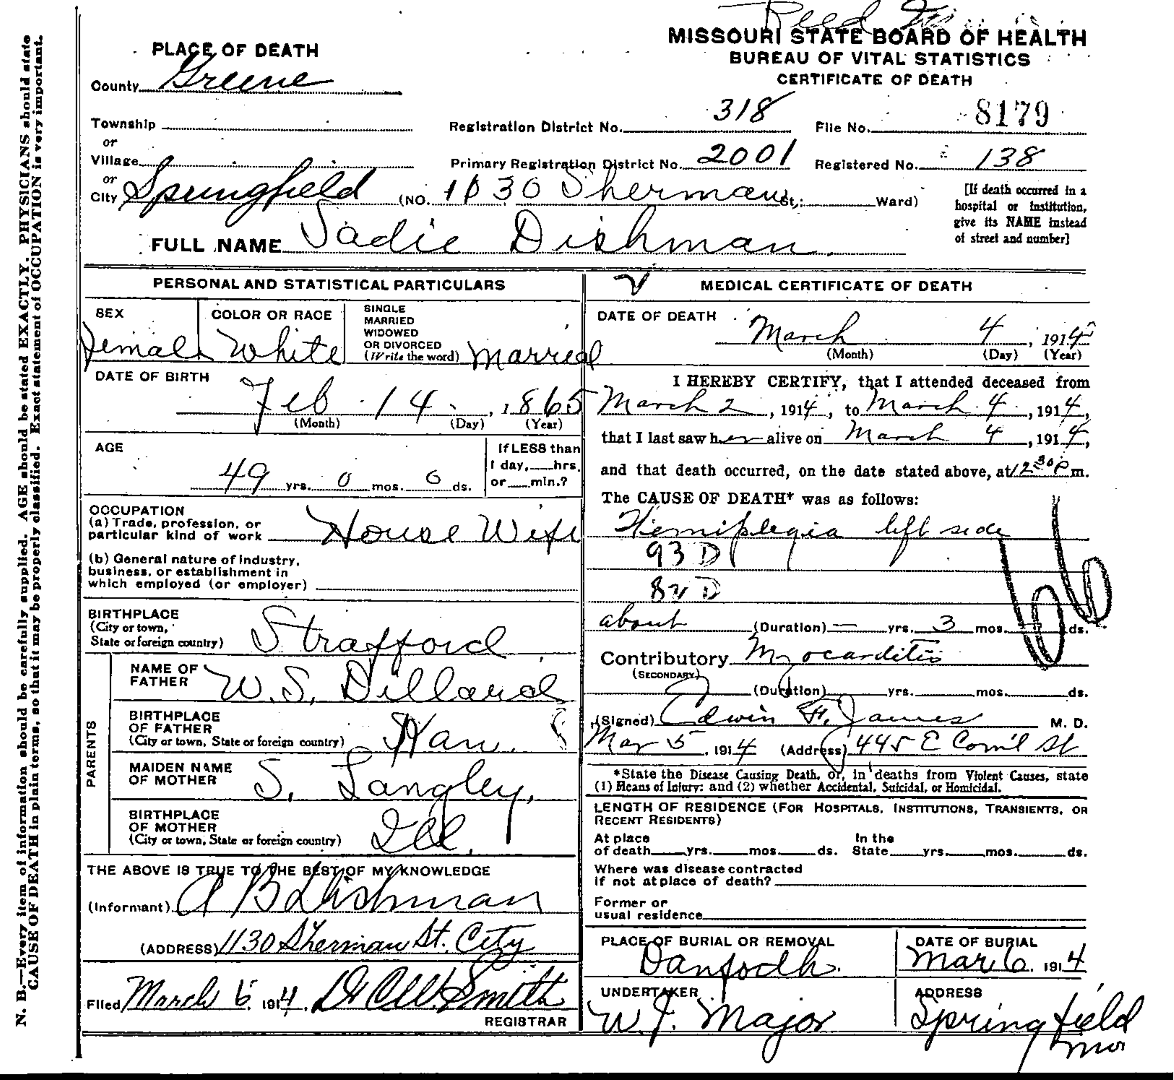 N. B.—Every item of information should be carefully supplied. AGE should be stated EXACTLY. PHYSICIANS should state
CAUSE OF DEATH in plain terms, so that it may be properly classified. Exact statement of OCCUPATION is very important.
MISSOURI STATE BOARD OF HEALTH
BUREAU OF VITAL STATISTICS
CERTIFICATE OF DEATH
PLACE OF DEATH
County Greene
Township
or
Village
or
City Springfield (NO. 1130 Sherman St.; Ward)
Registration District No. 318 File No. 8179
Primary Registration District No. 2001 Registered No. 138
[If death occurred in a
hospital or institution,
give its NAME instead
of street and number]
FULL NAME Sadie Dishman
PERSONAL AND STATISTICAL PARTICULARS
SEX Female
COLOR OR RACE White
SINGLE
MARRIED
WIDOWED
OR DIVORCED
(Write the word) Married
DATE OF BIRTH
Feb 14, 1865
(Month) (Day) (Year)
AGE
49 yrs. 0 mos. 0 ds.
If LESS than
1 day, hrs.
or min.?
OCCUPATION
(a) Trade, profession, or
particular kind of work House Wife
(b) General nature of industry,
business, or establishment in
which employed (or employer)
BIRTHPLACE
(City or town,
State or foreign country) Strafford
PARENTS
NAME OF
FATHER W. S. Dillard
BIRTHPLACE
OF FATHER
(City or town, State or foreign country)
MAIDEN NAME
OF MOTHER S. Langley,
BIRTHPLACE
OF MOTHER
(City or town, State or foreign country) Ill.
THE ABOVE IS TRUE TO THE BEST OF MY KNOWLEDGE
(Informant) A B Dishman
(ADDRESS) 1130 Sherman St. City
Filed March 6 1914. Dr CW Smith
REGISTRAR
MEDICAL CERTIFICATE OF DEATH
DATE OF DEATH March 4, 1914
(Month) (Day) (Year)
I HEREBY CERTIFY, that I attended deceased from
March 2, 1914, to March 4, 1914,
that I last saw her alive on March 4, 1914,
and that death occurred, on the date stated above, at 12 30 P m.
The CAUSE OF DEATH* was as follows:
Hemiplegia left side
93 D
82 D
66
about (Duration) — yrs. 3 mos. ds.
Contributory Myocarditis
(SECONDARY)
(Duration) yrs. mos. ds.
(Signed) Edwin F. James M. D.
Mar 5, 1914 (Address) 445 E Com'l St
*State the Disease Causing Death, or, in deaths from Violent Causes, state
(1) Means of Injury: and (2) whether Accidental, Suicidal, or Homicidal.
LENGTH OF RESIDENCE (FOR HOSPITALS, INSTITUTIONS, TRANSIENTS, OR
RECENT RESIDENTS)
At place In the
of death yrs. mos. ds. State yrs. mos. ds.
Where was disease contracted
if not at place of death?
Former or
usual residence
PLACE OF BURIAL OR REMOVAL
Danforth
DATE OF BURIAL
Mar 6. 1914
UNDERTAKER
W. J. Major
ADDRESS
Springfield
Mo